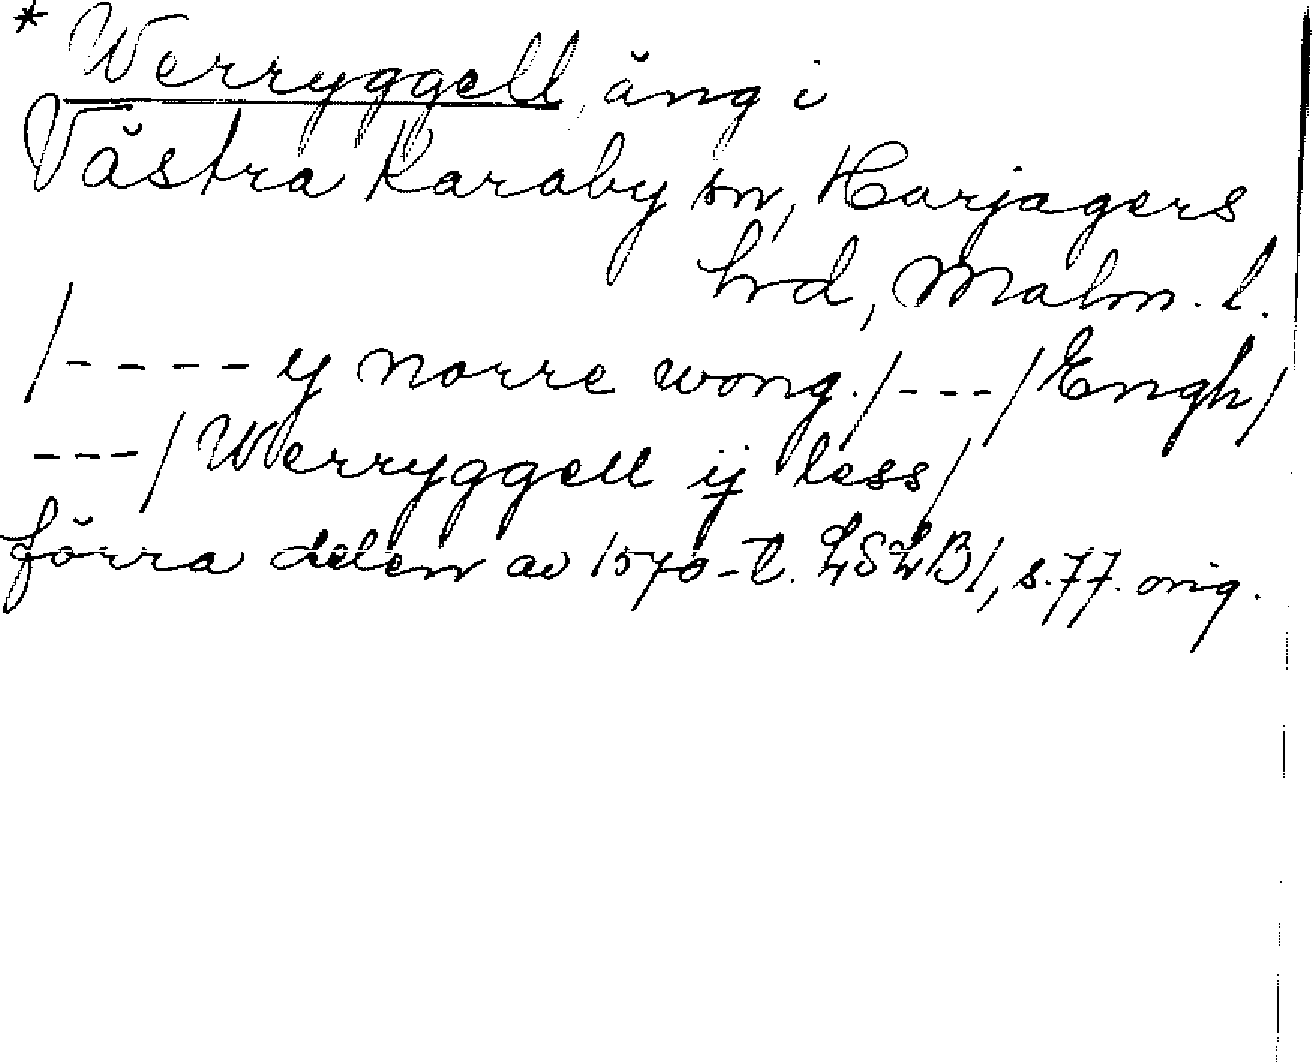 * Werryggell, äng i
Västra Karaby sn, Harjagers
hrd, Malm. l.
/---- y norre wong./---/Engh/
---/Werryggell ij less/
förra delen av 1570-t. LSLB1, s.77. orig.